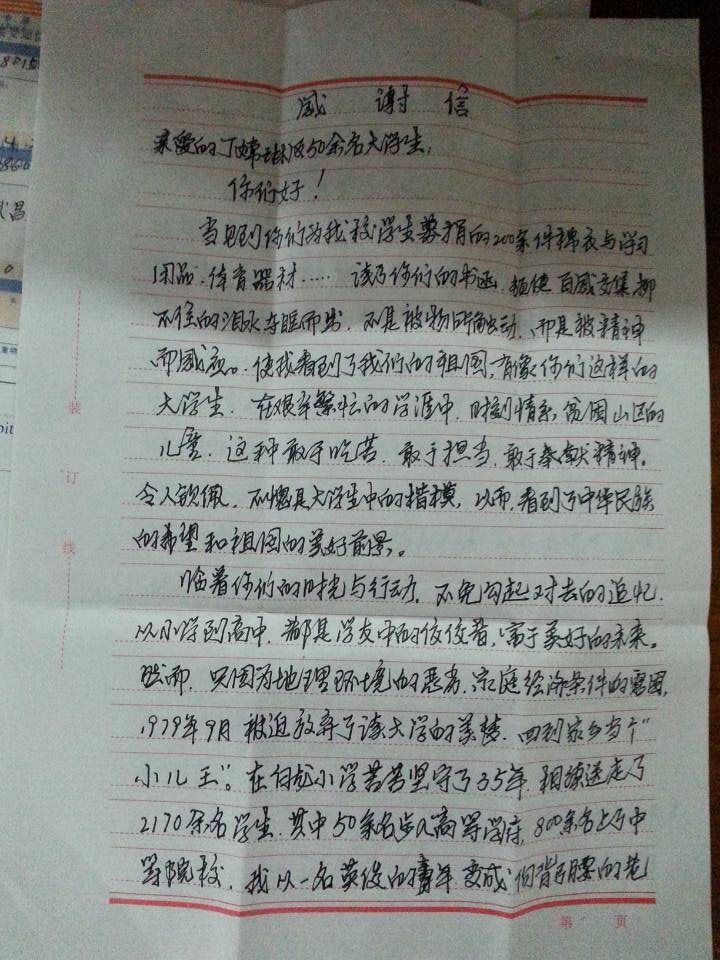 感谢信
亲爱的丁婵琳及50余名大学生:
你们好!
当见到你们为我校学生募捐的200余件棉衣与学习
用品、体育器材…… 读了你们的书函,顿使百感交集抑
不住的泪水夺眶而出,不是被物所触动,而是被精神
而感动。使我看到了我们的祖国,有像你们这样的
大学生,在艰辛繁忙的学涯中,时刻情系贫困山区的
儿童,这种敢于吃苦,敢于担当,敢于奉献精神,
令人钦佩,不愧是大学生中的楷模,从而,看到了中华民族
的希望和祖国的美好前景。
临着你们的时光与行动,不免勾起对去的追忆,
从小学到高中,都是学友中的佼佼者,富于美好的未来。
然而,只因为地理环境的恶劣,家庭经济条件的窘困,
1979年9月被迫放弃了读大学的美梦,回到家乡当个“
小儿王”。在白龙小学苦苦坚守了35年,相续送走了
2170余名学生,其中50余名步入高等学府,800余名上了中
等院校,我从一名英俊的青年变成佝背弓腰的老
第 页
装
订
线
8015